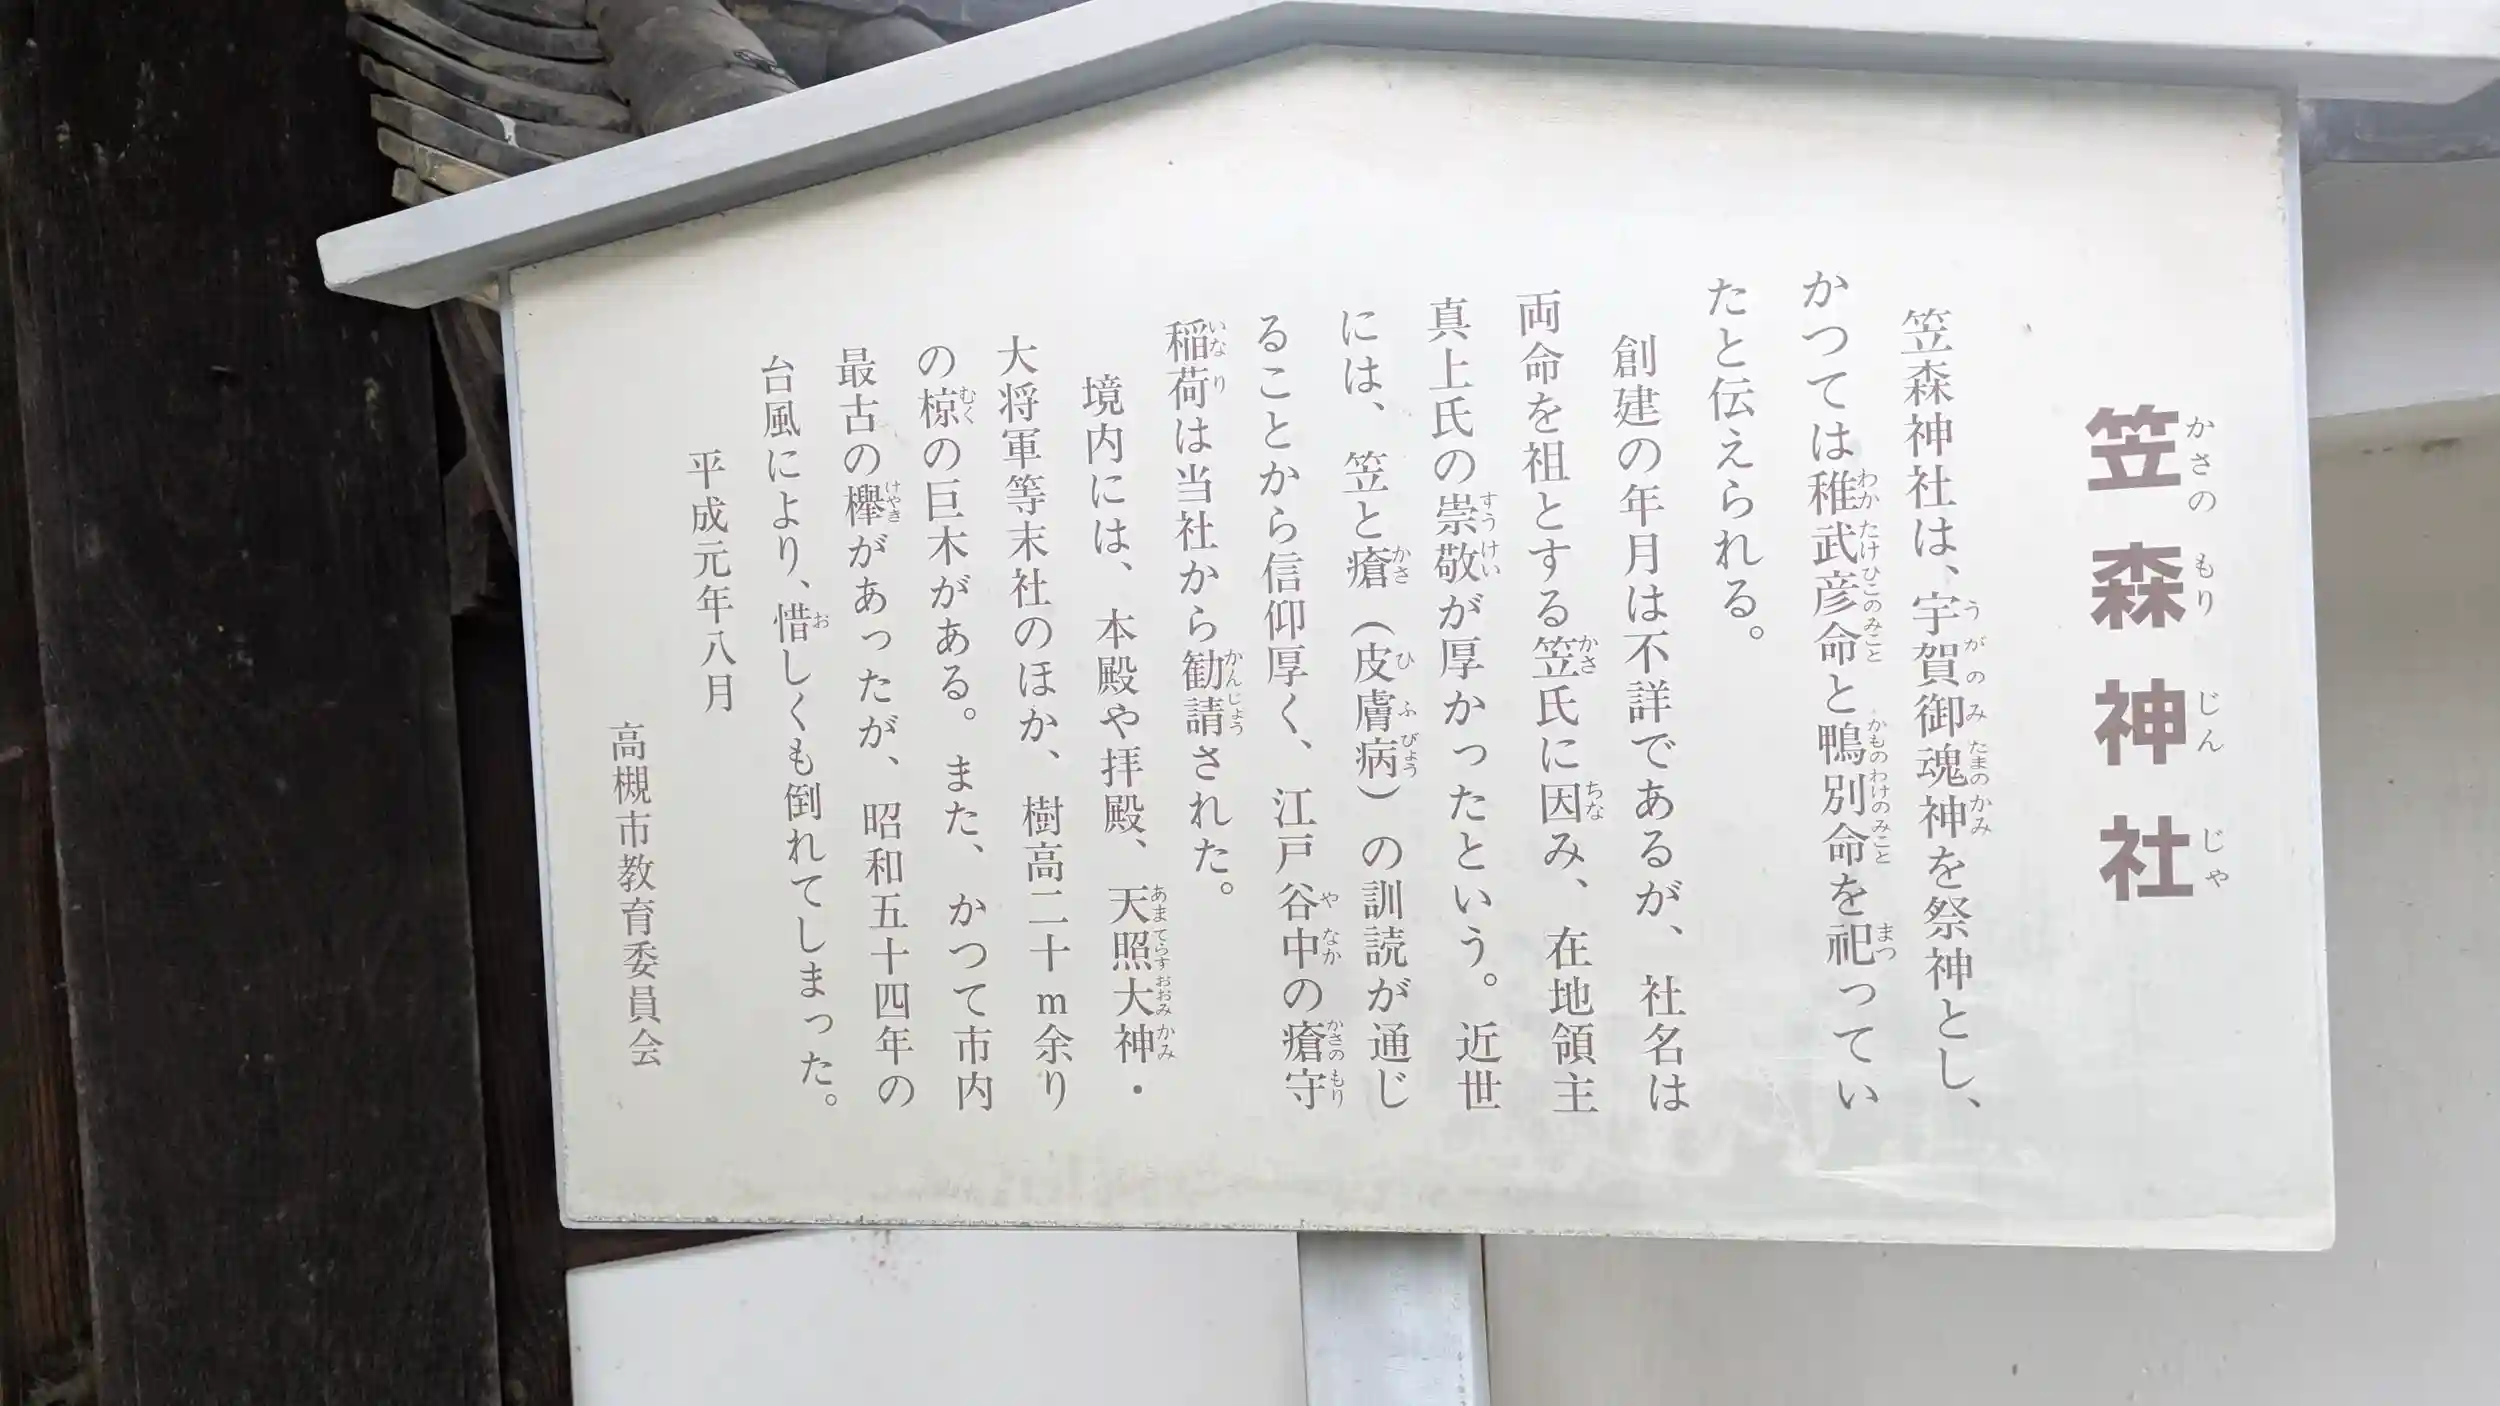 笠森神社
かさのもりじんじゃ
笠森神社は、宇賀御魂神を祭神とし、
うがのみたまのかみ
かつては稚武彦命と鴨別命を祀ってい
わかたけひこのみこと かものわけのみこと まつ
たと伝えられる。
創建の年月は不詳であるが、社名は
両命を祖とする笠氏に因み、在地領主
かさ ちな
真上氏の崇敬が厚かったという。近世
すうけい
には、笠と瘡(皮膚病)の訓読が通じ
かさ ひふびょう
ることから信仰厚く、江戸谷中の瘡守
やなか かさのもり
稲荷は当社から勧請された。
いなり かんじょう
境内には、本殿や拝殿、天照大神・
あまてらすおおみかみ
大将軍等末社のほか、樹高二十m余り
の椋の巨木がある。また、かつて市内
むく
最古の欅があったが、昭和五十四年の
けやき
台風により、惜しくも倒れてしまった。
お
平成元年八月
高槻市教育委員会